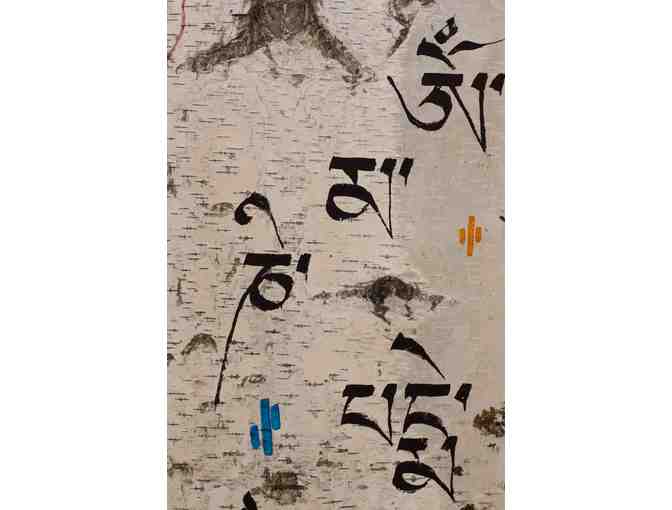 ཨོཾ་
མ་
ཎི་
པདྨེ་